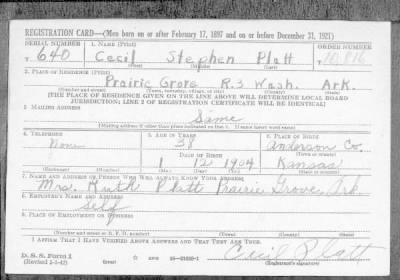 REGISTRATION CARD—(Men born on or after February 17, 1897 and on or before December 31, 1921)
SERIAL NUMBER 1. NAME (Print) ORDER NUMBER
T 640 Cecil Stephen Platt
(First) (Middle) (Last)
2. PLACE OF RESIDENCE (Print)
Prairie Grove R.3 Wash. Ark.
(Number and street) (Town, township, village, or city) (County) (State)
[THE PLACE OF RESIDENCE GIVEN ON THE LINE ABOVE WILL DETERMINE LOCAL BOARD
JURISDICTION; LINE 2 OF REGISTRATION CERTIFICATE WILL BE IDENTICAL]
3. MAILING ADDRESS
Same
[Mailing address if other than place indicated on line 2. If same insert word same]
4. TELEPHONE 5. AGE IN YEARS 6. PLACE OF BIRTH
None 38 Anderson Co.
DATE OF BIRTH (Town or county)
1 12 1904 Kansas
(Exchange) (Number) (Mo.) (Day) (Yr.) (State or country)
7. NAME AND ADDRESS OF PERSON WHO WILL ALWAYS KNOW YOUR ADDRESS
Mrs. Ruth Platt Prairie Grove, Ark.
8. EMPLOYER'S NAME AND ADDRESS
Self
9. PLACE OF EMPLOYMENT OR BUSINESS
(Number and street or R. F. D. number) (Town) (County) (State)
I AFFIRM THAT I HAVE VERIFIED ABOVE ANSWERS AND THAT THEY ARE TRUE.
D. S. S. Form 1
(Revised 1-1-42) (over) Cecil Platt
(Registrant's signature)